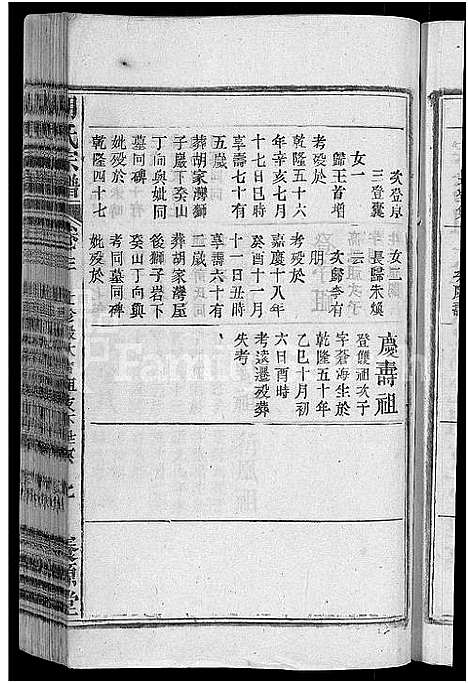 次登岸
三登囊
女一
歸王首增
考殁於
乾隆五十六
年辛亥七月
十七日巳時
享壽七十有
五歲
葬胡家灣獅
子巖下癸山
丁向與妣同
墓同碑
妣殁於
乾隆四十七
女二
長歸朱煥
云
次歸李有
朋
考殁於
嘉慶十八年
癸酉十一月
十一日丑時
享壽六十有
二歲
葬胡家灣屋
後獅子岩下
癸山丁向興
考同墓同碑
妣殁於
慶壽祖
登雙祖次子
字蒼海生於
乾隆五十年
乙巳十月初
六日酉時
考遠遷殁葬
失考
氏宗譜